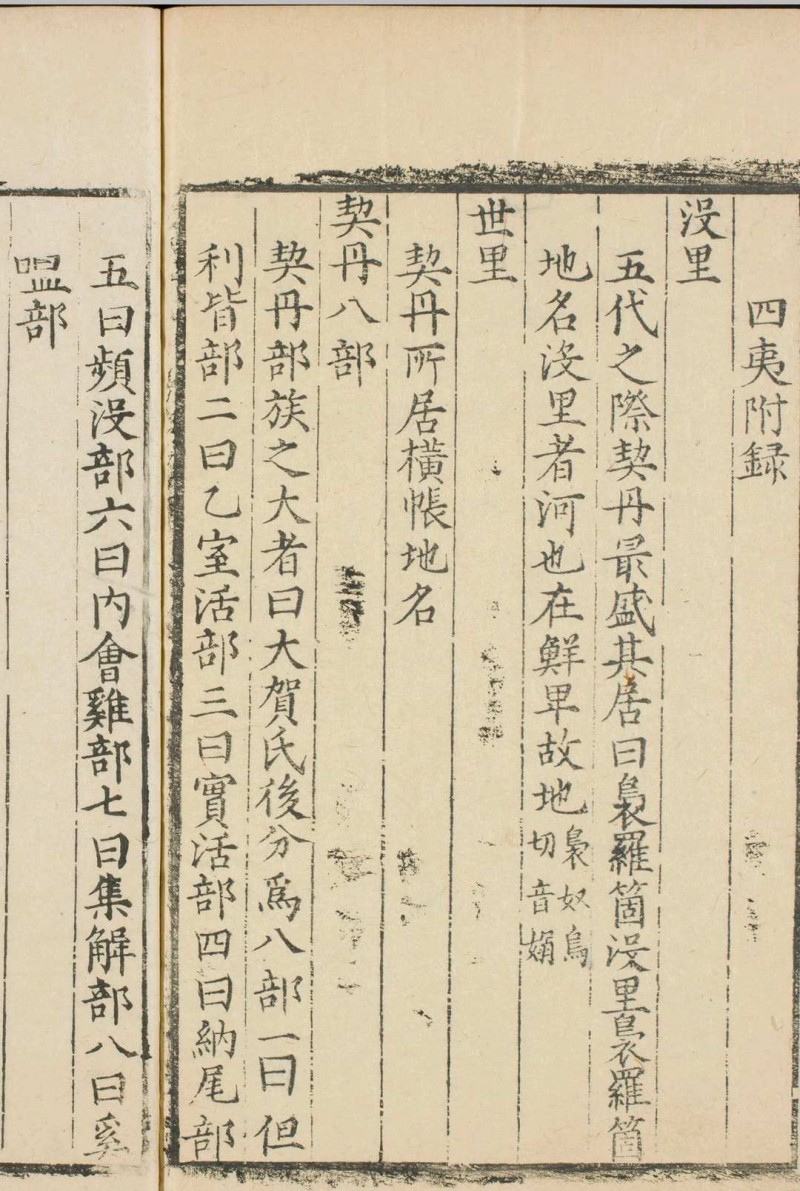 四夷附録
沒里
五代之際契丹最盛其居曰裊羅箇沒里裊羅箇
地名沒里者河也在鮮卑故地裊奴鳥切音嫋
世里
契丹所居橫帳地名
契丹八部
契丹部族之大者曰大賀氏後分爲八部一曰但
利皆部二曰乙室活部三曰實活部四曰納尾部
五曰頻沒部六曰内會雞部七曰集解部八曰奚
嗢部